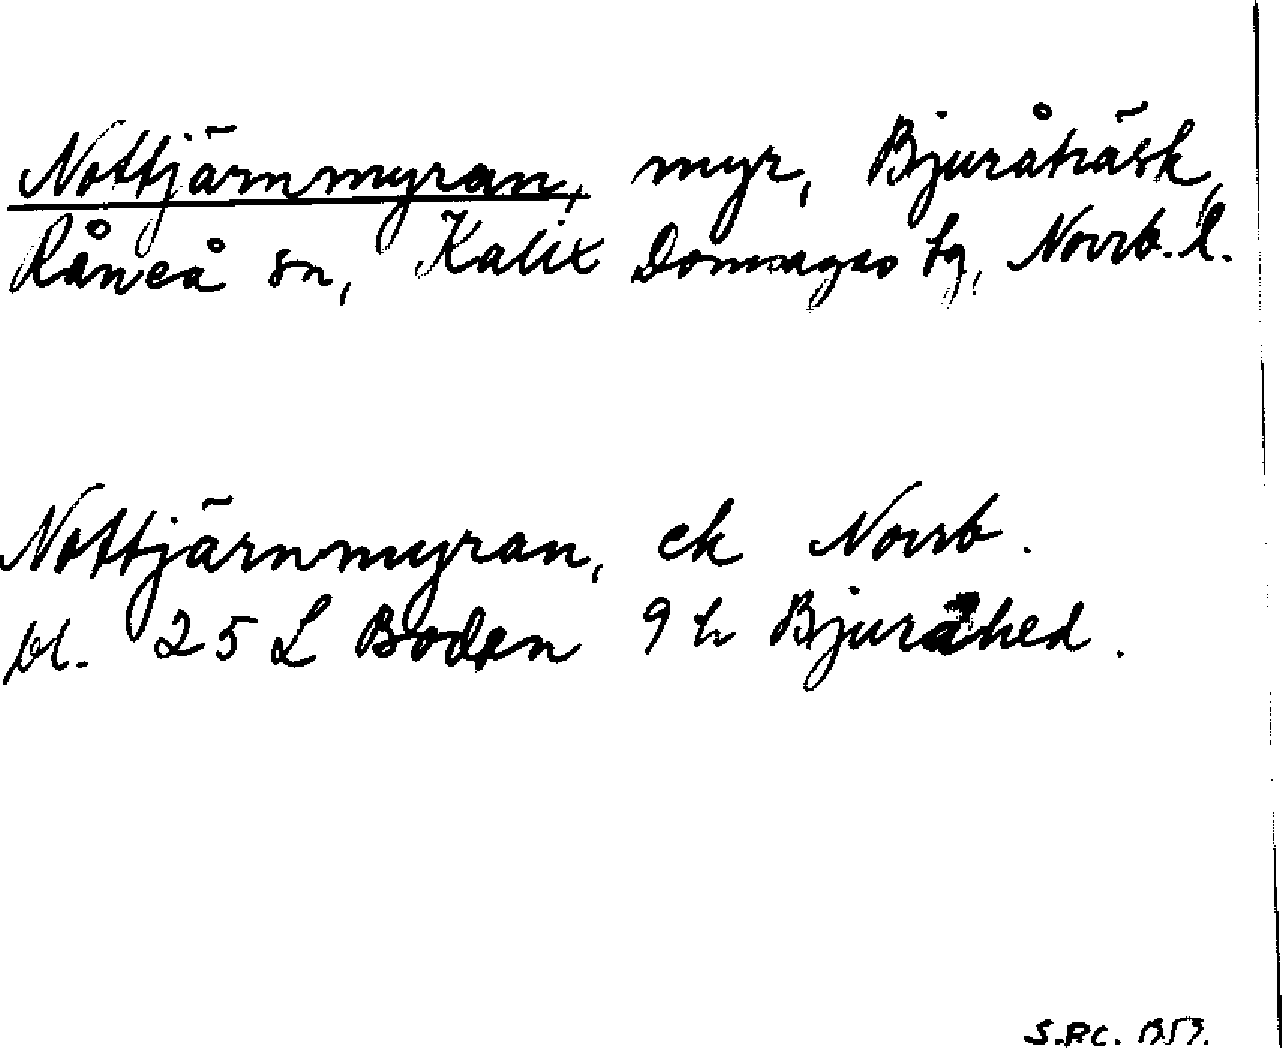 Nottjärnmyran, myr, Bjuråträsk,
Råneå sn, Kalix Domsagas tg, Norrb. l.
Nottjärnmyran, ek Norrb.
bl. 25 L Boden 9 h Bjuråhed.